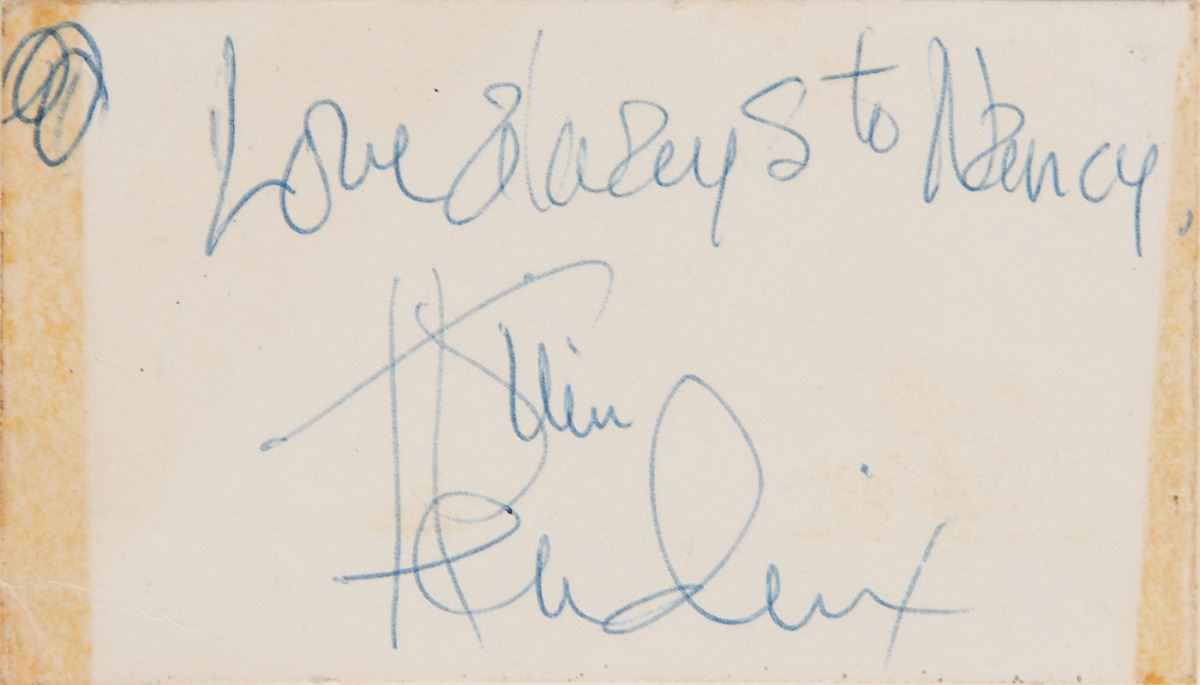 Love always to Nancy,
Jimi
Hendrix